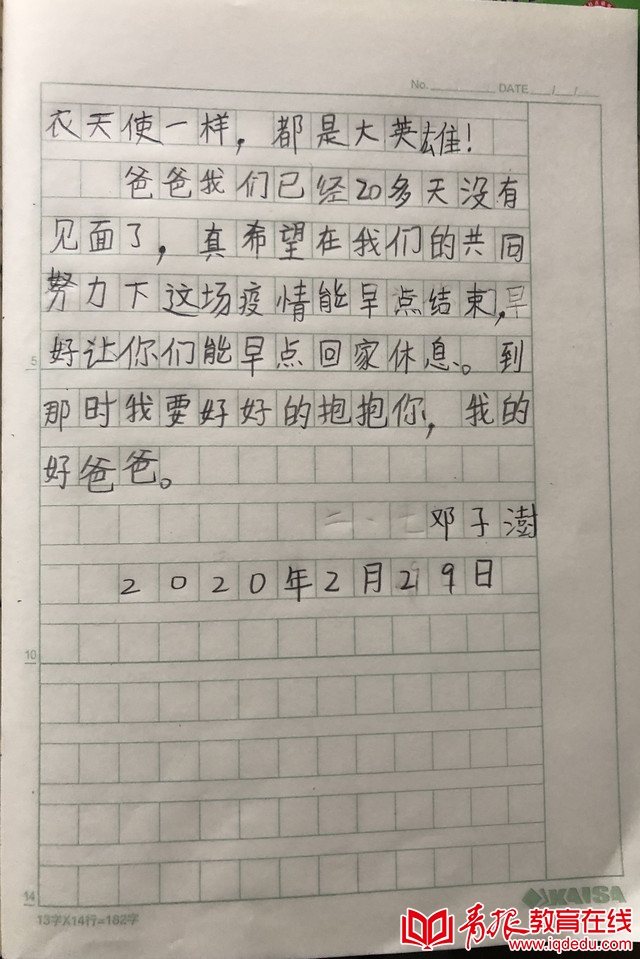 No. DATE / /
衣天使一样，都是大英雄！
爸爸我们已经20多天没有
见面了，真希望在我们的共同
努力下这场疫情能早点结束，早
5
好让你们能早点回家休息。到
那时我要好好的抱抱你，我的
好爸爸。
二·七邓子澍
2020年2月29日
10
14
13字X14行=182字
KAISA
青报教育在线
www.iqdedu.com